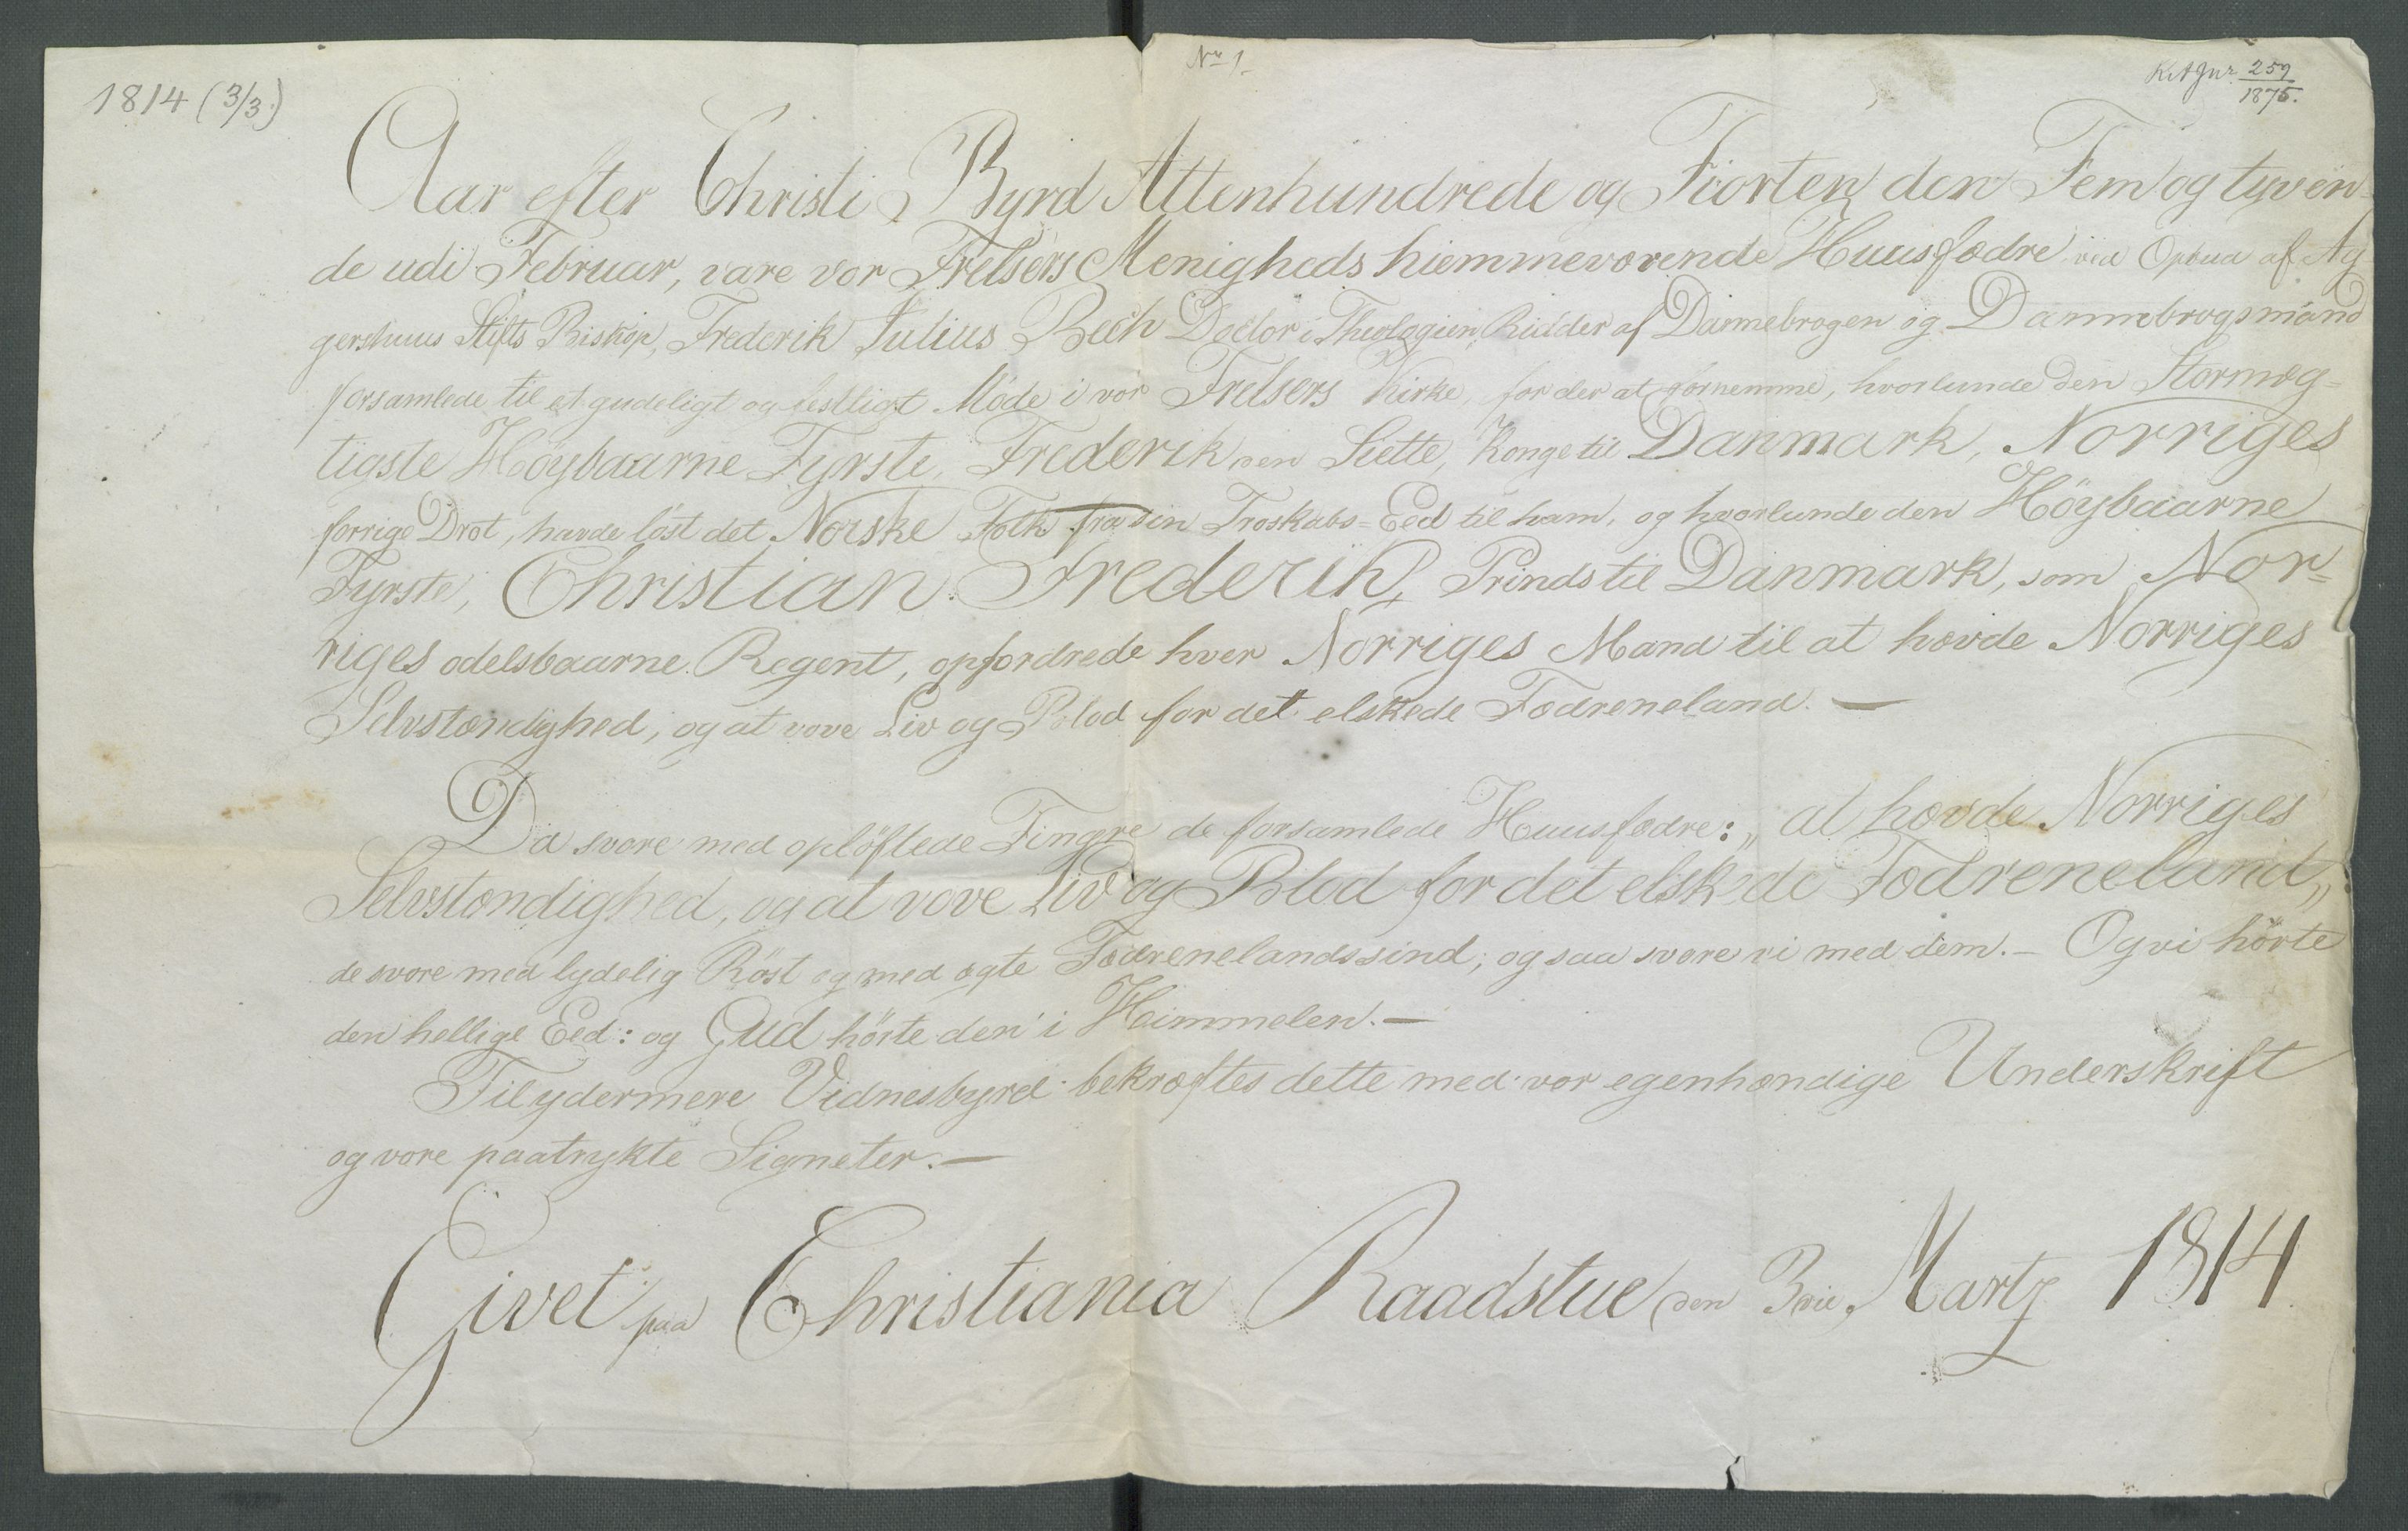 1814 (3/3.)
No 1.
K. A. Jnr. 259/1875.
Aar efter Christi Byrd Attenhundrede og Fiorten den Fem og tyven-
de udi Februar, vare vor Frelsers Menigheds hiemmeværende Huusfædre ved Opbud af Ag-
gershuus Stifts Biskop, Frederik Julius Bech Doctor i Theologien, Ridder af Dannebrogen og Dannebrogsmand
forsamlede til et gudeligt og festligt Møde i vor Frelsers Kirke, for der at fornemme, hvorlunde den Stormæg=
tigste Høybaarne Fyrste, Frederik den Siette, Konge til Danmark, Norriges
forrige Drot, havde løst det Norske Folk fra sin Troskabs=Eed til ham, og hvorlunde den Høybaarne
Fyrste, Christian Frederik, Prinds til Danmark, som Nor=
riges odelsbaarne Regent, opfordrede hver Norriges Mand til at hævde Norriges
Selvstændighed, og at vove Liv og Blod for det elskede Fædreneland. —
Da svore med opløftede Fingre de forsamlede Huusfædre: „at hævde Norriges
Selvstændighed, og at vove Liv og Blod for det elskede Fædreneland„:
de svore med lydelig Røst og med ægte Fædrenelandssind; og saa svore vi med dem. — Og vi hørte
den hellige Eed: og Gud hørte den i Himmelen. —
Til ydermere Vidnesbyrd bekræftes dette med vor egenhændige Underskrift
og vore paatrykte Signeter. —
Givet paa Christiania Raadstue den 3die Martz 1814.